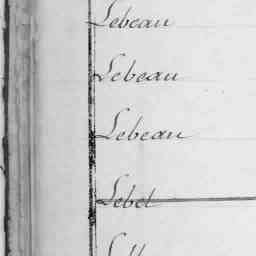 Lebeau
Lebeau
Lebeau
Lebel